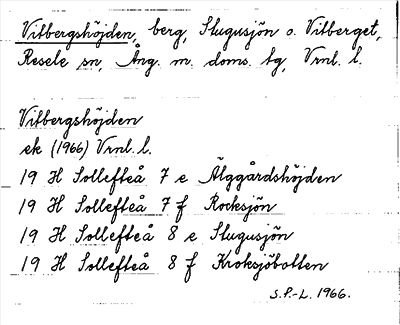 Vitbergshöjden, berg, Slugusjön o. Vitberget,
Resele sn, Ång. m. doms. tg, Vrnl. l.
Vitbergshöjden
ek (1966) Vrnl. l.
19 H Sollefteå 7 e Älggårdshöjden
19 H Sollefteå 7 f Rocksjön
19 H Sollefteå 8 e Slugusjön
19 H Sollefteå 8 f Kroksjöbotten
S.P.-L. 1966.